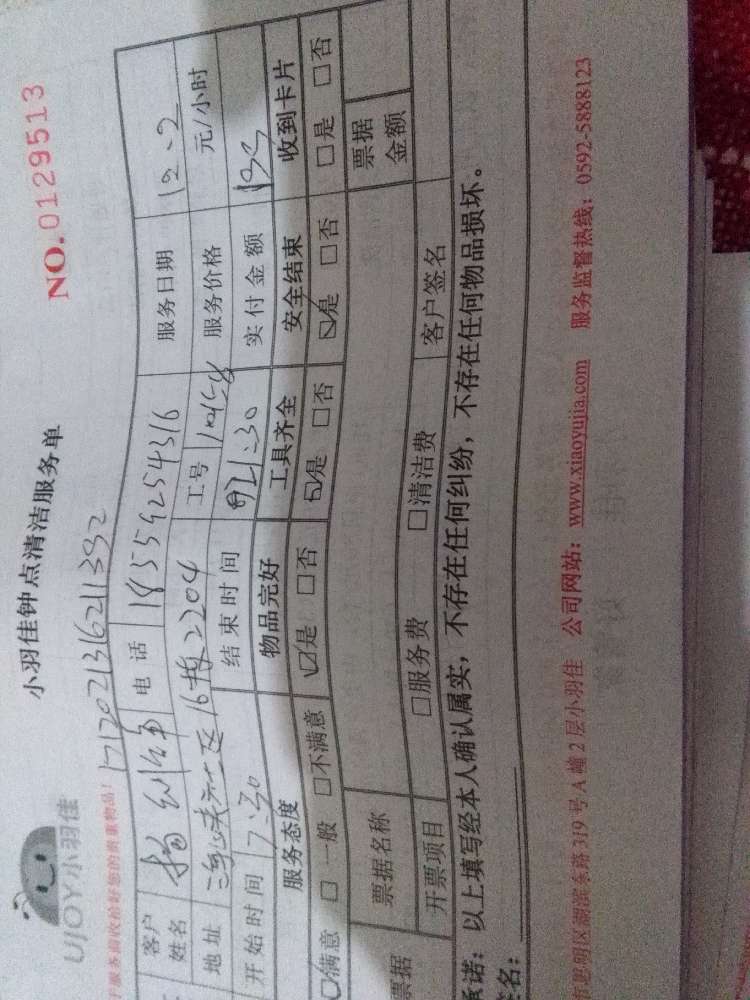 小羽佳钟点清洁服务单
NO.0129513
UJOY小羽佳
服务前收拾好您的贵重物品! 1712021316211392
客户姓名 杨 电话 18559254316 服务日期 12.2
地址 16楼2204 工号 服务价格 元/小时
开始时间 7:30 结束时间 21:30 实付金额
服务态度 物品完好 工具齐全 安全结束 收到卡片
满意 □一般 □不满意 ☑是 □否 ☑是 □否 ☑是 □否 □是 □否
票据 票据名称 票据金额
开票项目 □服务费 □清洁费 客户签名
承诺: 以上填写经本人确认属实,不存在任何纠纷,不存在任何物品损坏。
签名:
市思明区湖滨东路319号A幢2层小羽佳 公司网站: www.xiaoyujia.com 服务监督热线: 0592-5888123